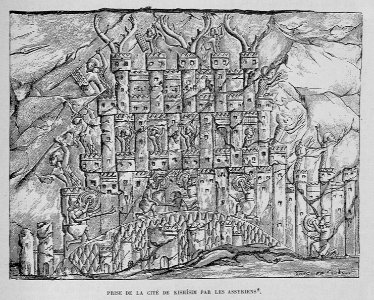 PRISE DE LA CITÉ DE KISHÍSIM PAR LES ASSYRIENS